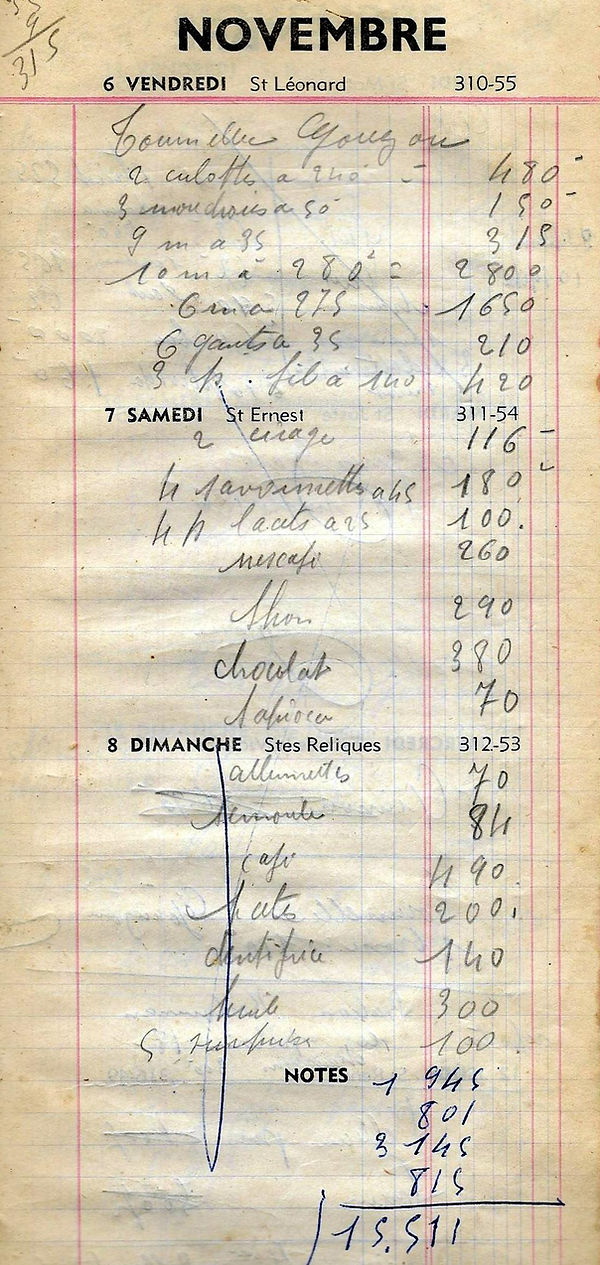 35
9
315
NOVEMBRE
6 VENDREDI St Léonard 310-55
2 culottes a 240 = 480-
3 mouchoirs a 50 150-
9 m a 35 315
10 m à 280 = 2800
6 m a 275 1650
6 gants a 35 210
3 p. fil à 140 420
7 SAMEDI St Ernest 311-54
2 cirage 116-
4 savonnettes a 45 180-
4 p lacets a 25 100.
nescafe 260
thon 290
chocolat 380
tapioca 70
8 DIMANCHE Stes Reliques 312-53
allumettes 70
semoule 84
cafe 490
pates 200.
dentifrice 140
huile 300
5 surprise 100
NOTES 1 945
801
3 145
815
15.511